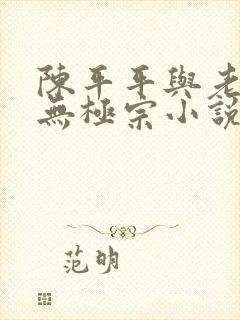 陳平平與老
無極宗小說
范明